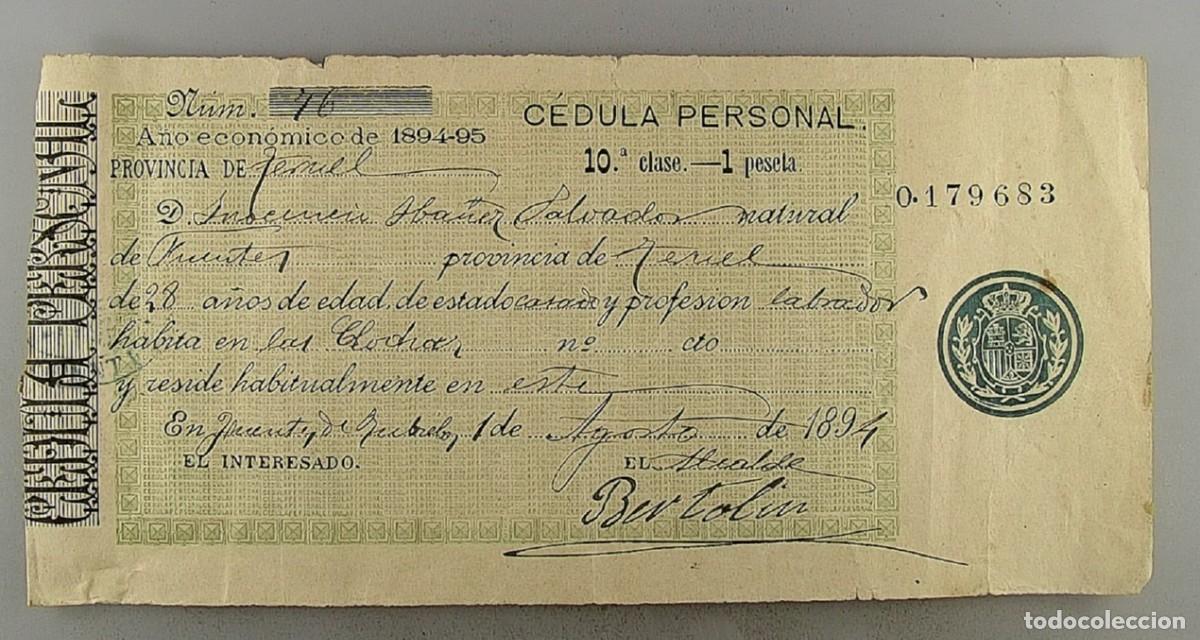 CÉDULA PERSONAL
Núm. 76
Año económico de 1894-95
PROVINCIA DE Teruel
CÉDULA PERSONAL.
10.ª clase.—1 peseta.
0.179683
D. Inocencio Ibañez Salvador natural
de Fuentes provincia de Teruel
de 28 años de edad, de estado casado y profesion labrador
habita en las Clochas nº cto
y reside habitualmente en este
En Fuentes de Rubielos 1 de Agosto de 1894
EL INTERESADO.
EL Alcalde
Bertolin
todocoleccion